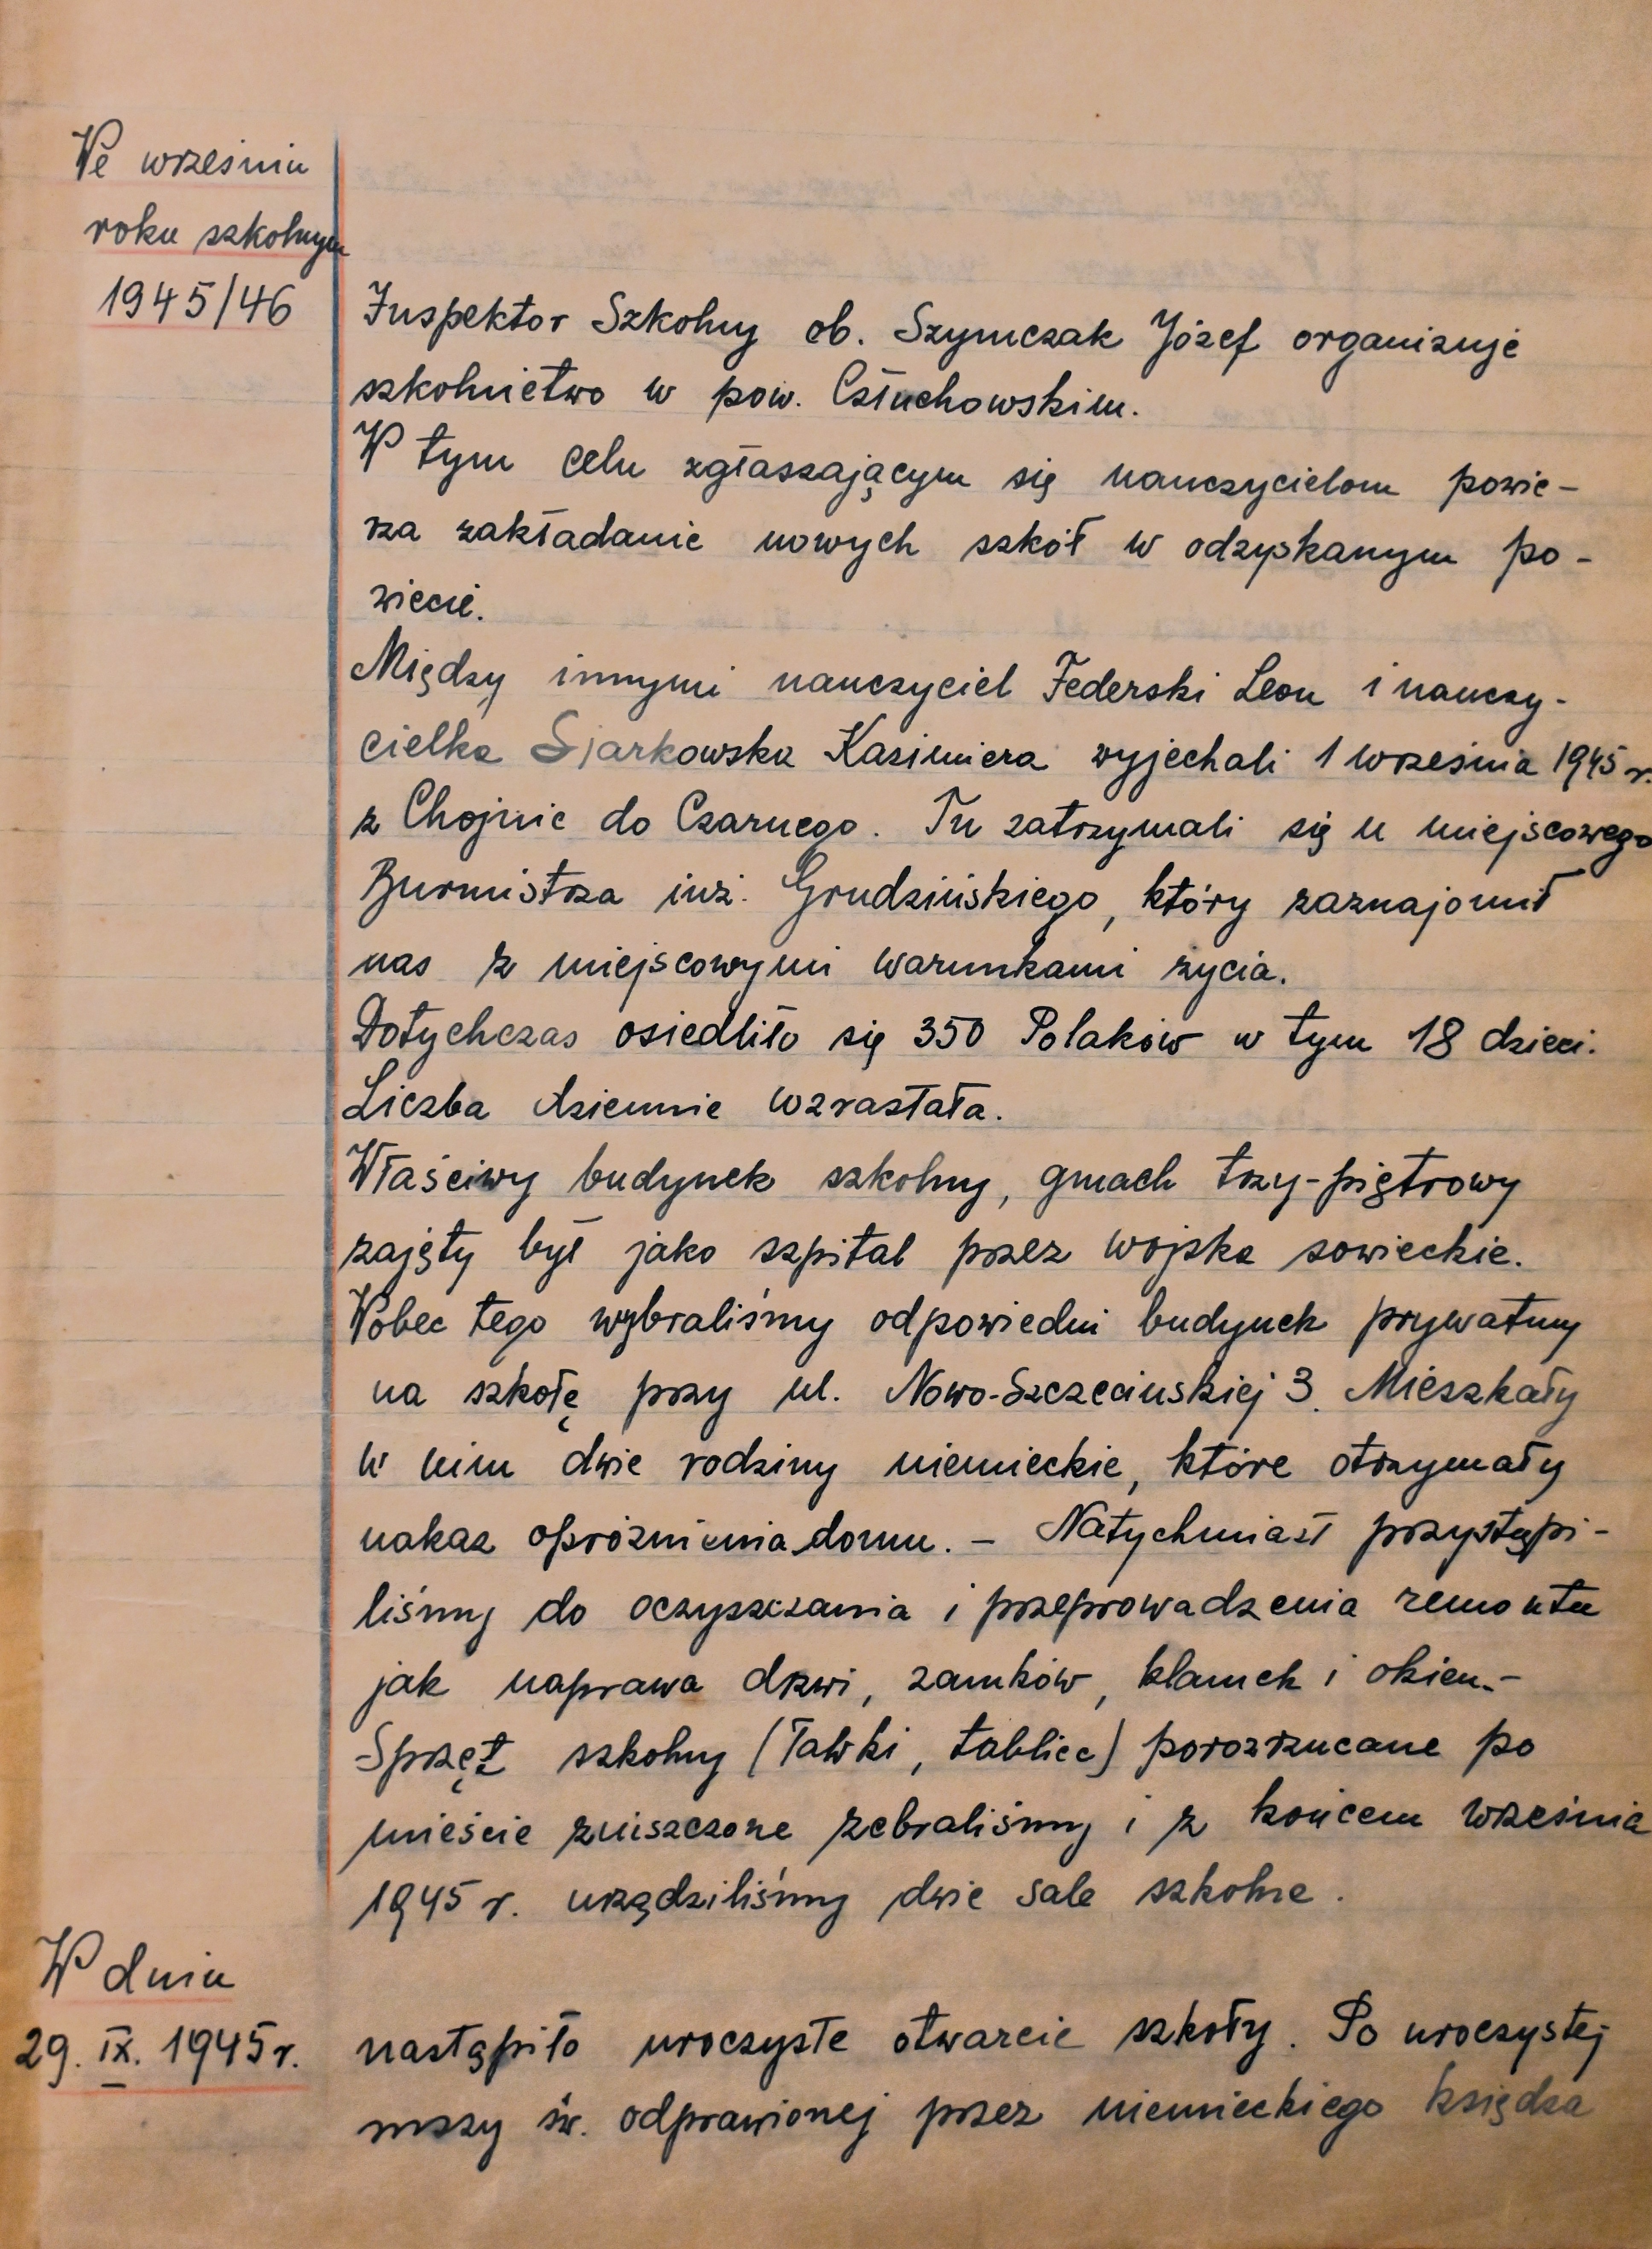 We wrześniu
roku szkolnym
1945/46
Inspektor Szkolny ob. Szymczak Józef organizuje
szkolnictwo w pow. Człuchowskim.
W tym celu zgłaszającym się nauczycielom powie-
rza zakładanie nowych szkół w odzyskanym po-
wiecie.
Między innymi nauczyciel Federski Leon i nauczy-
cielka Siarkowska Kazimiera wyjechali 1 września 1945 r.
z Chojnic do Czarnego. Tu zatrzymali się u miejscowego
Burmistrza inż. Grudzińskiego, który zaznajomił
nas z miejscowymi warunkami życia.
Dotychczas osiedliło się 350 Polaków w tym 18 dzieci.
Liczba dziennie wzrastała.
Właściwy budynek szkolny, gmach trzy-piętrowy
zajęty był jako szpital przez wojska sowieckie.
Wobec tego wybraliśmy odpowiedni budynek prywatny
na szkołę przy ul. Nowo-Szczecinskiej 3. Mieszkały
w nim dwie rodziny niemieckie, które otrzymały
nakaz opróżnienia domu. - Natychmiast przystąpi-
liśmy do oczyszczania i przeprowadzenia remontu
jak naprawa drzwi, zamków, klamek i okien.-
Sprzęt szkolny (ławki, tablice) porozrzucane po
mieście zniszczone zebraliśmy i z końcem września
1945 r. urządziliśmy dwie sale szkolne.
W dniu
29. IX. 1945 r. nastąpiło uroczyste otwarcie szkoły. Po uroczystej
mszy św. odprawionej przez niemieckiego księdza